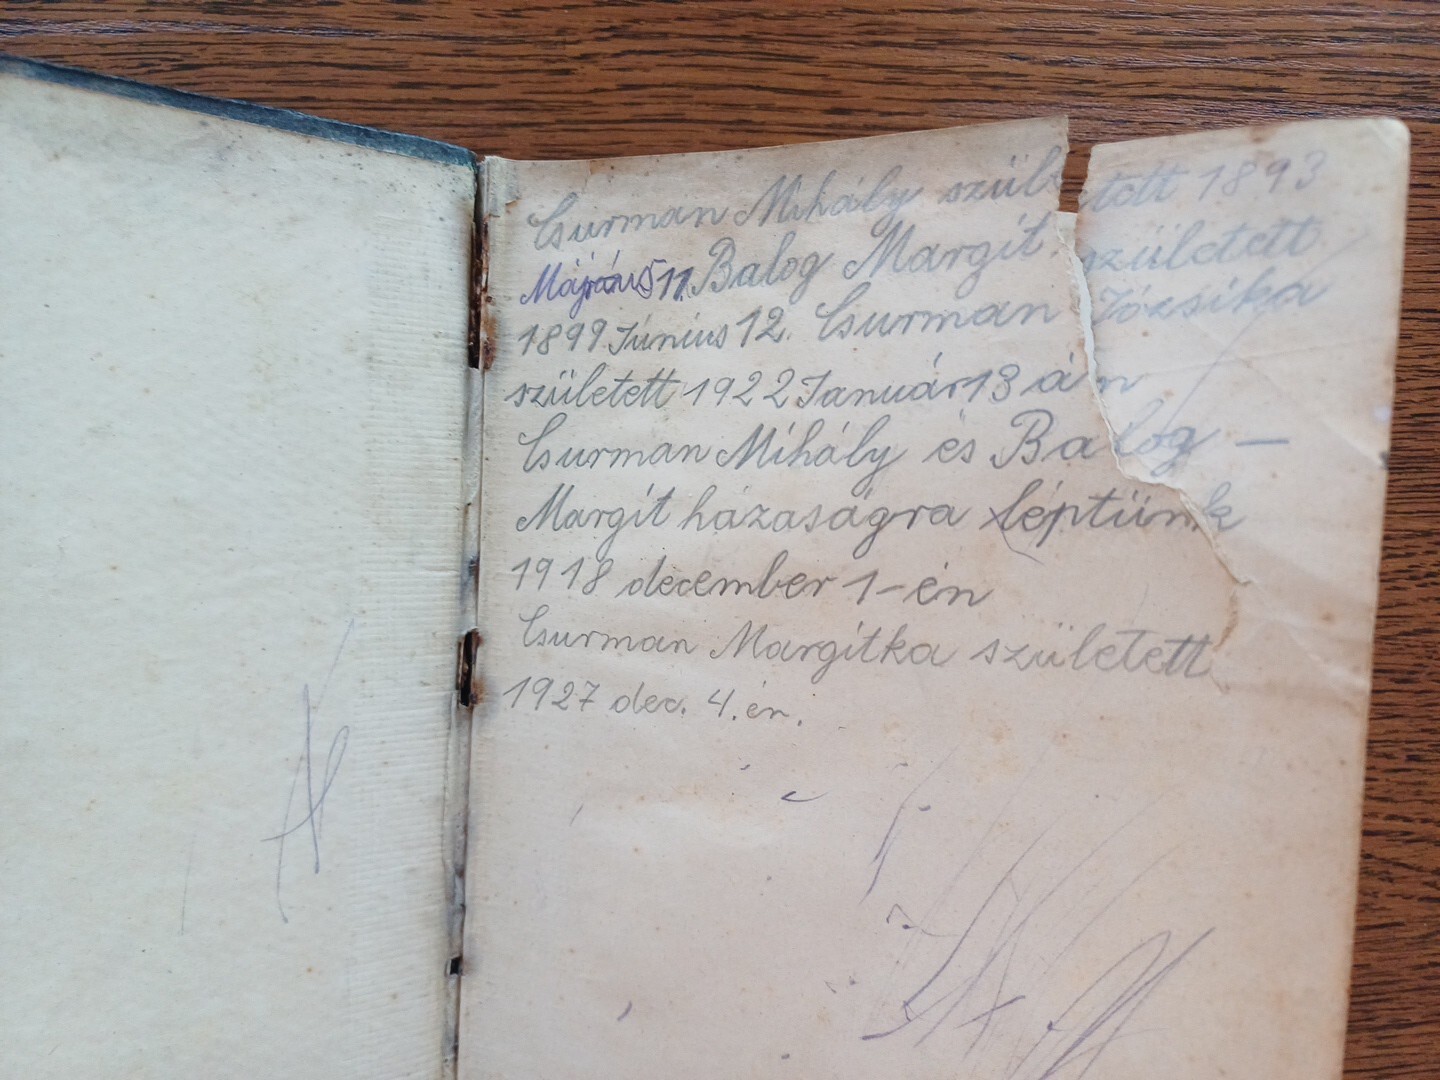 Csurman Mihály született 1893
11. Balog Margít született
1899 Június 12. Csurman Józsika
született 1922 Január 13 án
Csurman Mihály és Balog –
Margít házaságra léptünk
1918 december 1-én
Csurman Margítka született
1927 dec. 4.én.